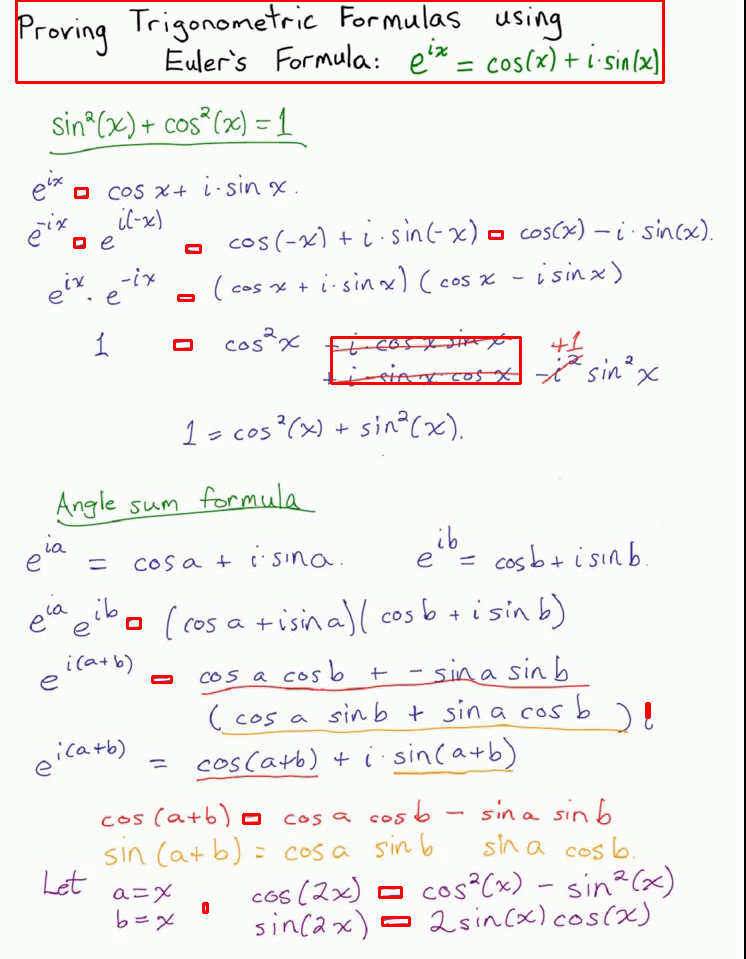 Proving Trigonometric Formulas using
Euler's Formula: e^{ix} = cos(x) + i·sin(x)
sin²(x) + cos²(x) = 1
e^{ix} = cos x + i·sin x.
e^{-ix} = e^{i(-x)} = cos(-x) + i·sin(-x) = cos(x) - i·sin(x).
e^{ix}·e^{-ix} = (cos x + i·sin x)(cos x - i sin x)
1 = cos²x - i·cos x sin x +1
+ i·sin x cos x - i² sin²x
1 = cos²(x) + sin²(x).
Angle sum formula
e^{ia} = cos a + i·sin a. e^{ib} = cos b + i sin b.
e^{ia} e^{ib} = (cos a + i sin a)(cos b + i sin b)
e^{i(a+b)} = cos a cos b + - sin a sin b
(cos a sin b + sin a cos b) i
e^{i(a+b)} = cos(a+b) + i·sin(a+b)
cos(a+b) = cos a cos b - sin a sin b
sin(a+b) = cos a sin b sin a cos b.
Let a=x cos(2x) = cos²(x) - sin²(x)
b=x sin(2x) = 2 sin(x) cos(x)